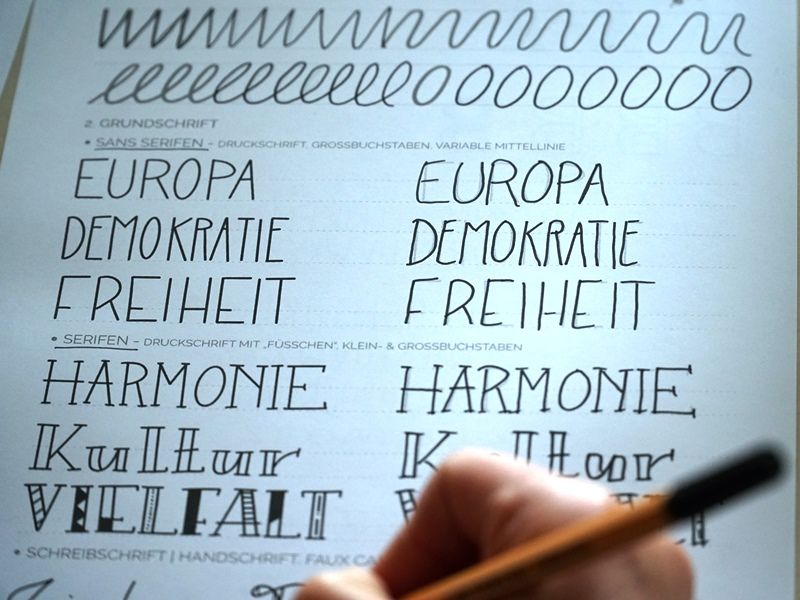 2. GRUNDSCHRIFT
• SANS SERIFEN - DRUCKSCHRIFT, GROSSBUCHSTABEN, VARIABLE MITTELLINIE
EUROPA EUROPA
DEMOKRATIE DEMOKRATIE
FREIHEIT FREIHEIT
• SERIFEN - DRUCKSCHRIFT MIT „FÜSSCHEN“, KLEIN- & GROSSBUCHSTABEN
HARMONIE HARMONIE
Kultur Kultur
VIELFALT
• SCHREIBSCHRIFT | HANDSCHRIFT, FAUX